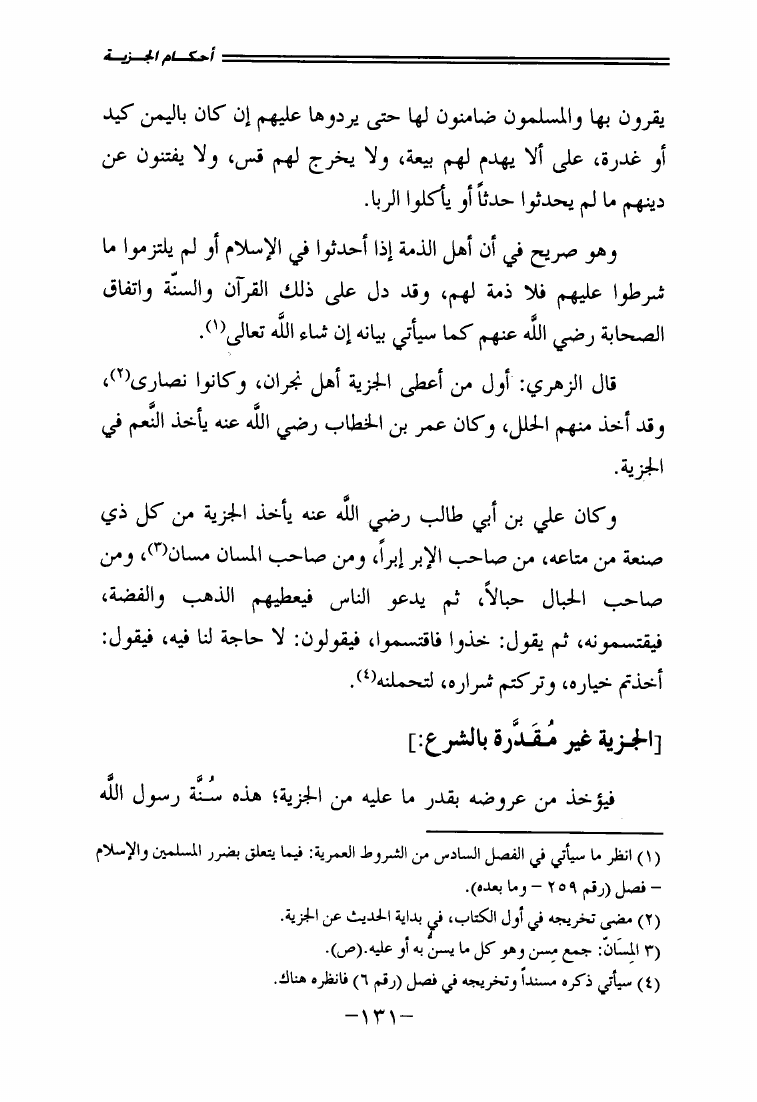 أحكام الجزية
يقرون بها والمسلمون ضامنون لها حتى يردوها عليهم إن كان باليمن كيد
أو غدرة، على ألا يهدم لهم بيعة، ولا يخرج لهم قس، ولا يفتنون عن
دينهم ما لم يحدثوا حدثاً أو يأكلوا الربا.
وهو صريح في أن أهل الذمة إذا أحدثوا في الإسلام أو لم يلتزموا ما
شرطوا عليهم فلا ذمة لهم، وقد دل على ذلك القرآن والسنّة واتفاق
الصحابة رضي اللَّه عنهم كما سيأتي بيانه إن شاء اللَّه تعالى(١).
قال الزهري: أول من أعطى الجزية أهل نجران، وكانوا نصارى(٢)،
وقد أخذ منهم الحلل، وكان عمر بن الخطاب رضي اللَّه عنه يأخذ النَّعم في
الجزية.
وكان علي بن أبي طالب رضي اللَّه عنه يأخذ الجزية من كل ذي
صنعة من متاعه، من صاحب الإبر إبراً، ومن صاحب المسان مسان(٣)، ومن
صاحب الحبال حبالاً، ثم يدعو الناس فيعطيهم الذهب والفضة،
فيقتسمونه، ثم يقول: خذوا فاقتسموا، فيقولون: لا حاجة لنا فيه، فيقول:
أخذتم خياره، وتركتم شراره، لتحملنه(٤).
[الجزية غير مُقَدَّرة بالشرع:]
فيؤخذ من عروضه بقدر ما عليه من الجزية؛ هذه سُنَّة رسول اللَّه
(١) انظر ما سيأتي في الفصل السادس من الشروط العمرية: فيما يتعلق بضرر المسلمين والإسلام
– فصل (رقم ٢٥٩ – وما بعده).
(٢) مضى تخريجه في أول الكتاب، في بداية الحديث عن الجزية.
(٣ المِسَانّ: جمع مِسن وهو كل ما يسنُّ به أو عليه.(ص).
(٤) سيأتي ذكره مسنداً وتخريجه في فصل (رقم ٦) فانظره هناك.
–١٣١–